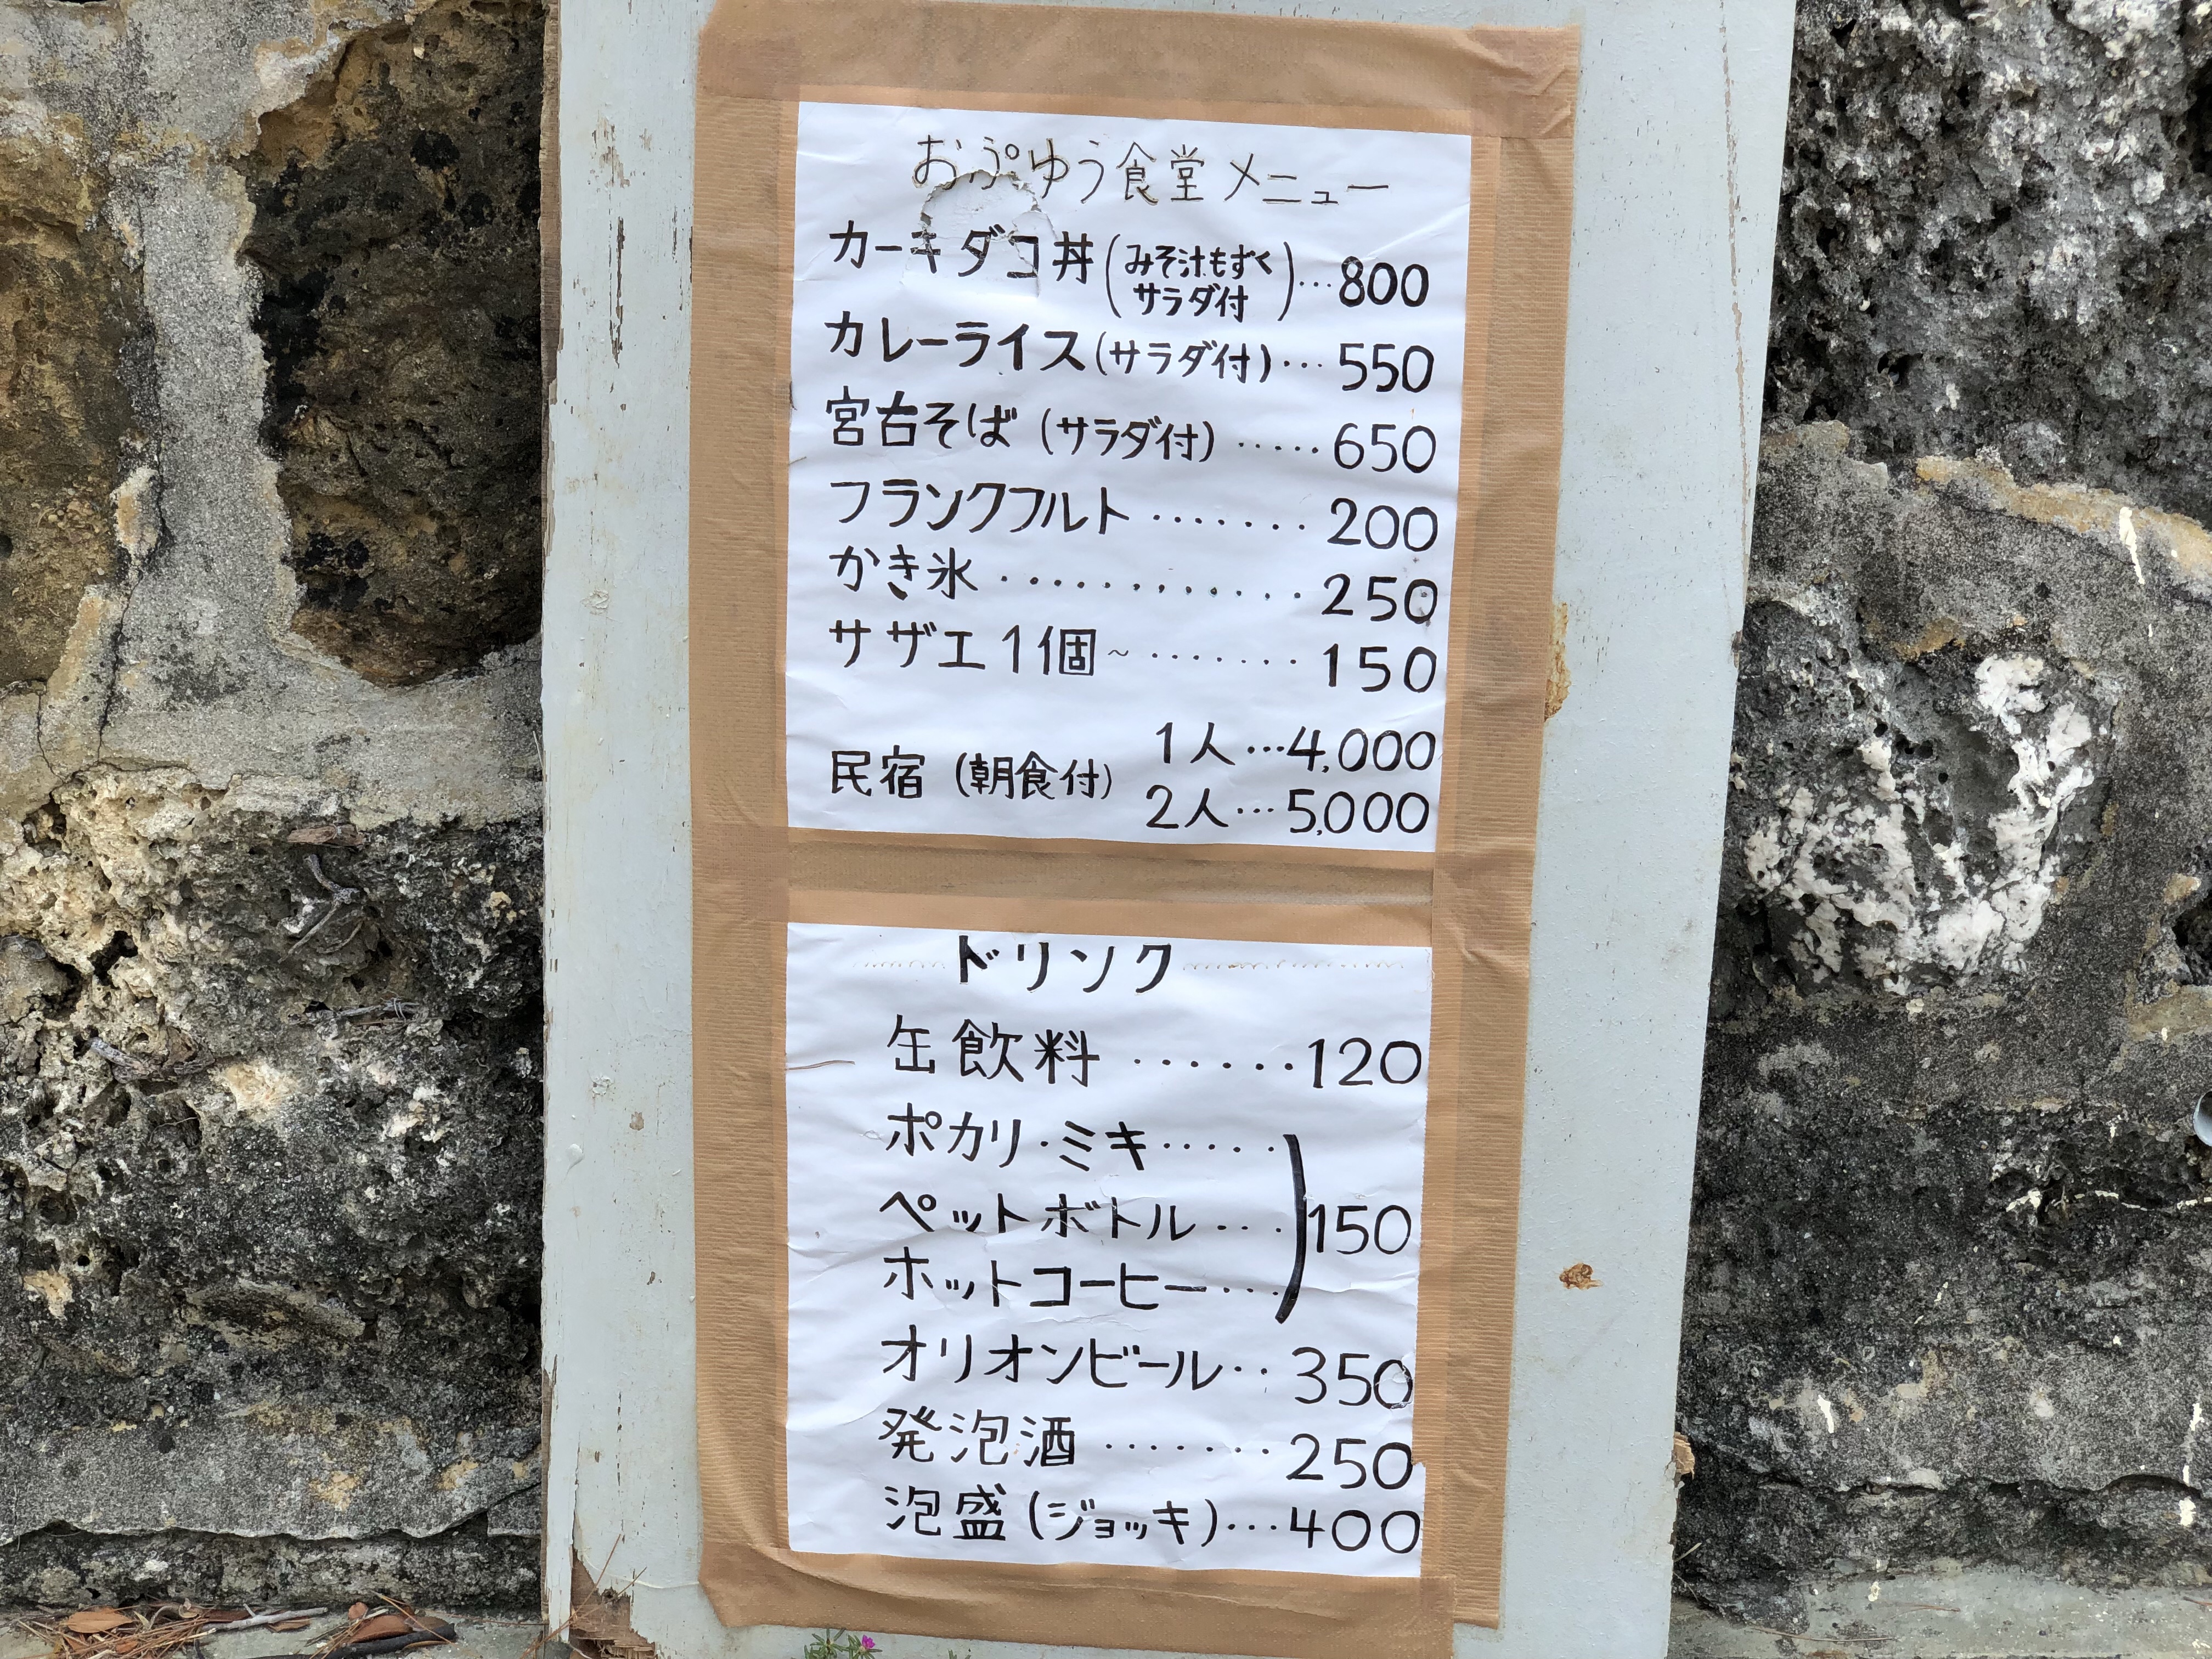 おぷゆう食堂メニュー
カーキダコ丼(みそ汁もずくサラダ付)…800
カレーライス(サラダ付)…550
宮古そば(サラダ付)‥‥‥650
フランクフルト‥‥‥‥200
かき氷‥‥‥‥‥‥250
サザエ1個~‥‥‥‥150
民宿(朝食付) 1人…4,000
2人…5,000
ドリンク
缶飲料‥‥‥120
ポカリ・ミキ‥‥‥
ペットボトル…)150
ホットコーヒー…
オリオンビール‥350
発泡酒‥‥‥‥250
泡盛(ジョッキ)…400